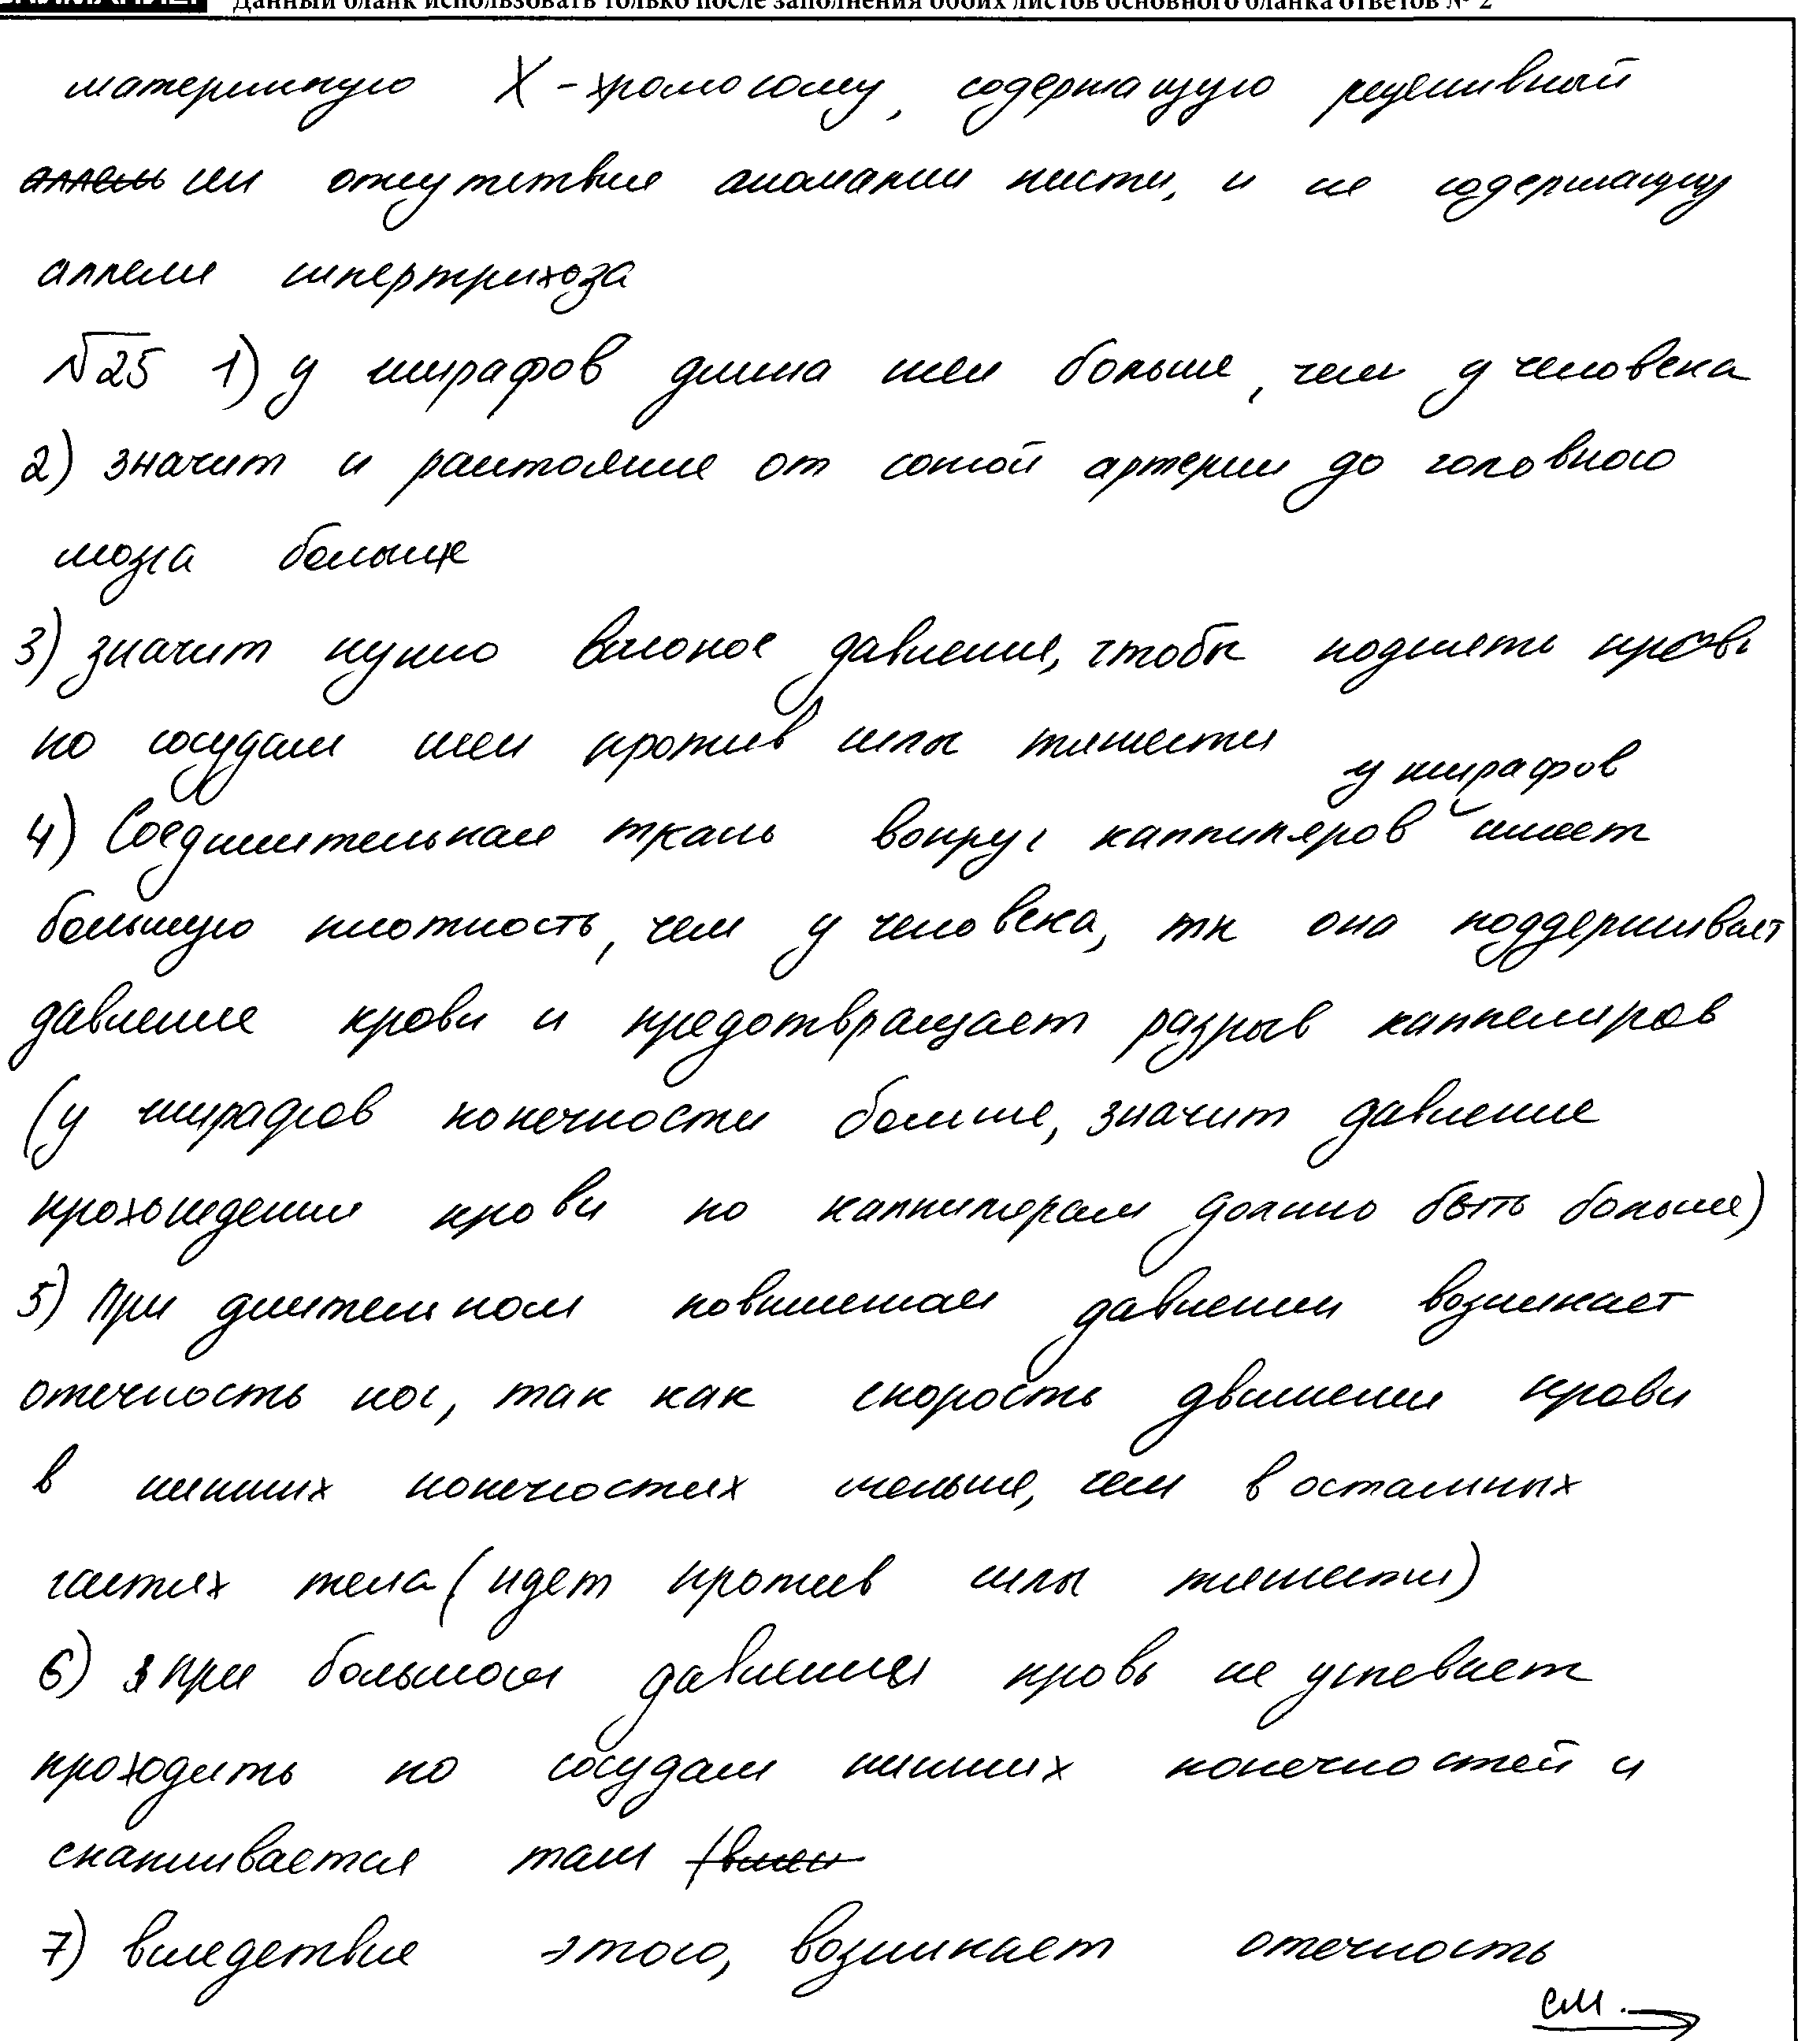 Данный бланк использовать только после заполнения обоих листов основного бланка ответов № 2
материнскую X-хромосому, содержащую рецессивный
аллель отсутствия аномалии кисти, и не содержащую
аллели гипертрихоза
№25 1) у жирафов длина шеи больше, чем у человека
2) значит и расстояние от сонной артерии до головного
мозга больше
3) значит нужно высокое давление, чтобы поднять кровь
по сосудам шеи против силы тяжести
у жирафов
4) Соединительная ткань вокруг каппиляров имеет
большую плотность, чем у человека, тк она поддерживает
давление крови и предотвращает разрыв каппеляров
(у жирафов конечности больше, значит давление
прохождения крови по каппилярам должно быть больше)
5) При длительном повышенам давлении возникает
отечность ног, так как скорость движения крови
в нижних конечностях меньше, чем в остальных
частях тела (идет против силы тяжести)
6) при большом давлении кровь не успевает
проходить по сосудам нижних конечностей и
скапливается там
7) вследствие этого, возникает отечность
см.